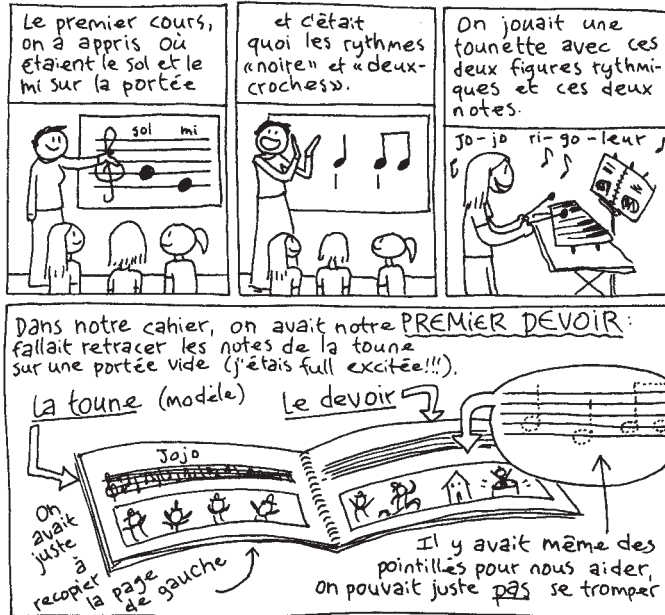 Le premier cours,
on a appris où
étaient le sol et le
mi sur la portée
sol mi
et c'était
quoi les rythmes
«noire» et «deux-
croches».
On jouait une
tounette avec ces
deux figures rythmi-
ques et ces deux
notes.
Jo-jo ri-go-leur
Dans notre cahier, on avait notre PREMIER DEVOIR:
fallait retracer les notes de la toune
sur une portée vide (j'étais full excitée!!!).
La toune (modèle)
Le devoir
Jojo
On
avait
juste
à
recopier
la page
de gauche
Il y avait même des
pointillés pour nous aider,
on pouvait juste pas se tromper